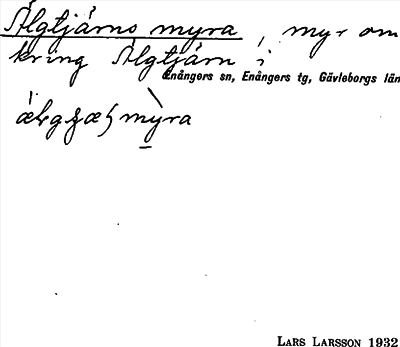 Älgtjärns myra, myr om
kring Älgtjärn i
Enångers sn, Enångers tg, Gävleborgs län
myra
LARS LARSSON 1932